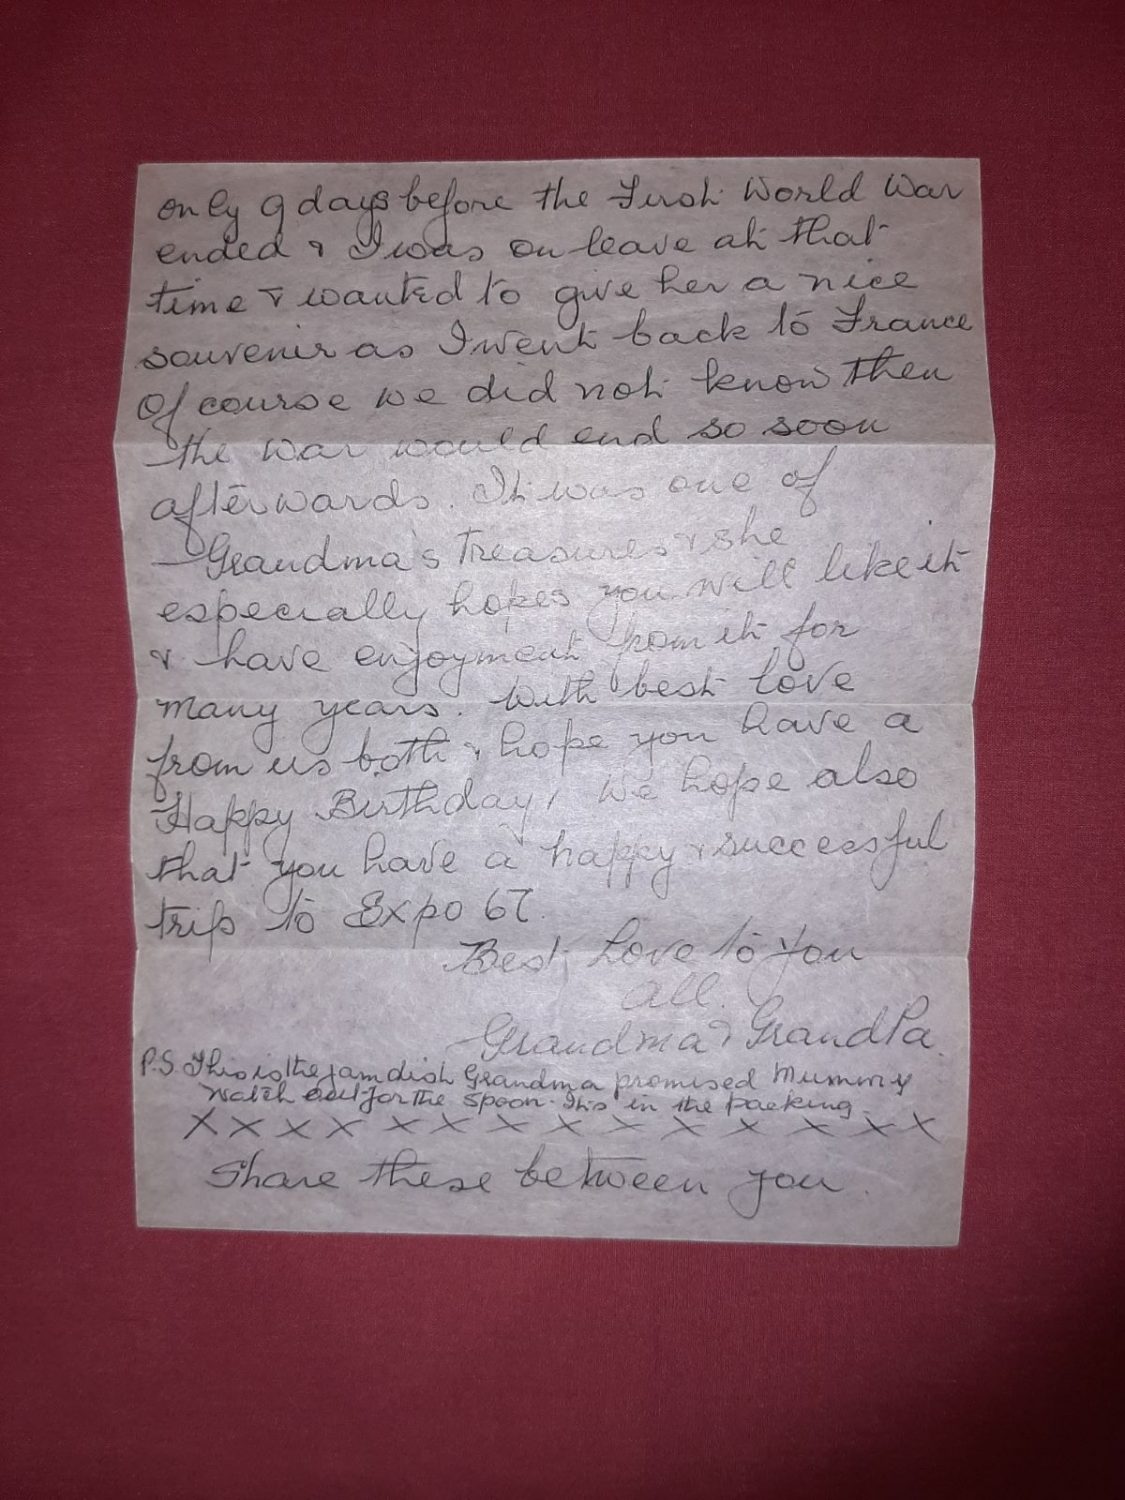 only 9 days before the First World War
ended & I was on leave at that
time & wanted to give her a nice
souvenir as I went back to France
Of course we did not know then
the war would end so soon
afterwards. It was one of
Grandma's treasures & she
especially hopes you will like it
& have enjoyment from it for
many years. With best love
from us both & hope you have a
Happy Birthday, We hope also
that you have a happy & successful
trip to Expo 67.
Best Love to You
all.
Grandma & GrandPa.
P.S. This is the jam dish Grandma promised Mummy
Watch out for the spoon. Its in the packing.
X X X X X X X X X X X X X X
Share these between you.